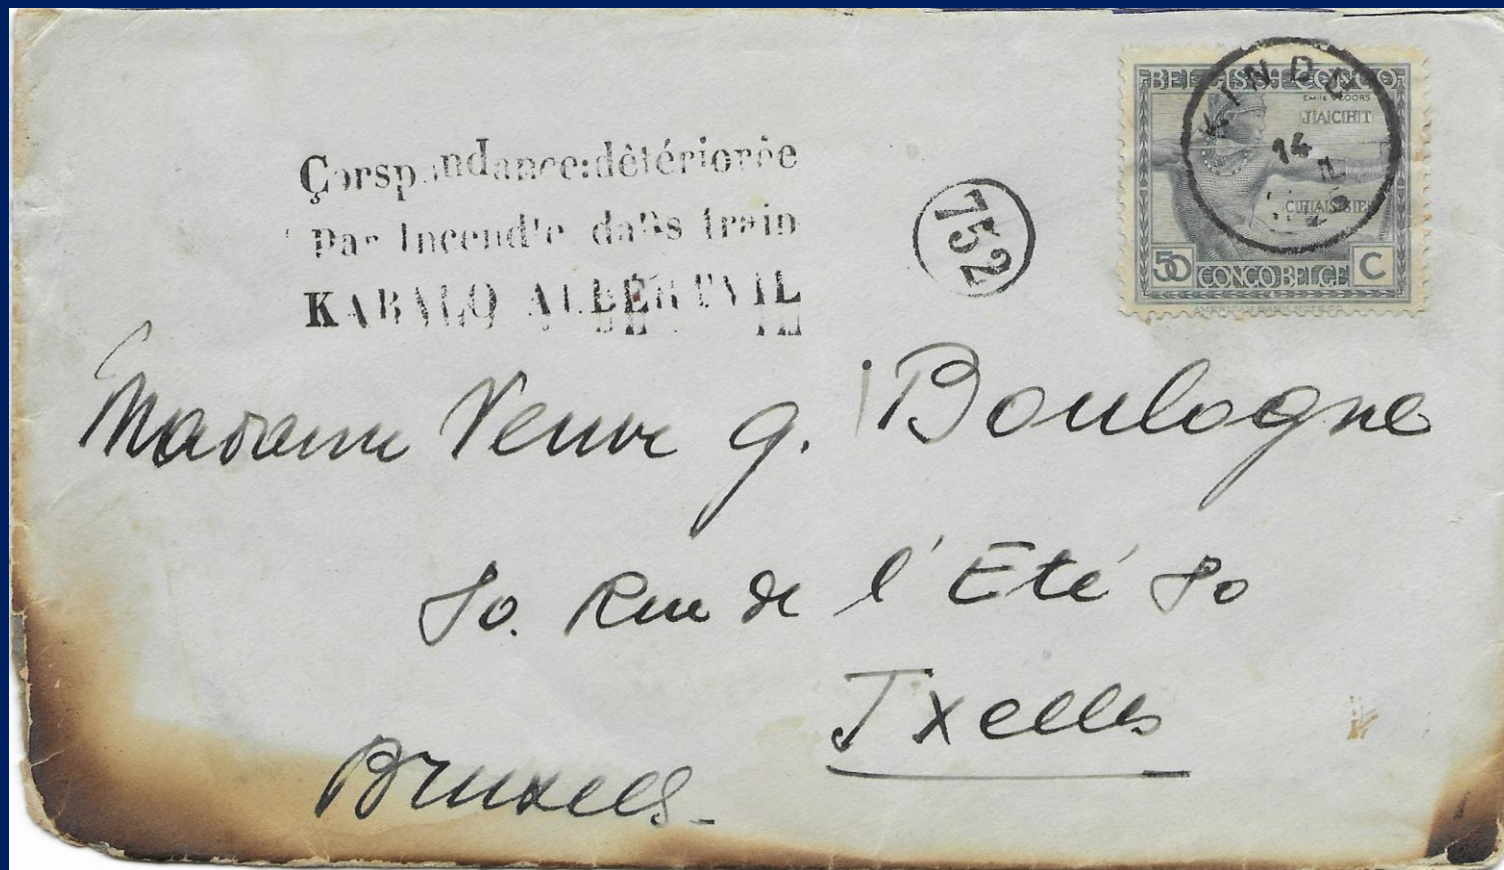 Corspondance:détériorée
Par Incendie dans train
KABALO ALBERTVIL
752
KINDU
14
BELGISCH CONGO
EMILE VLOORS
JIACHIT
50 CONGO BELGE C
Madame Veuve G. Boulogne
80. Rue de l'Eté 80
Ixelles
Bruxelles